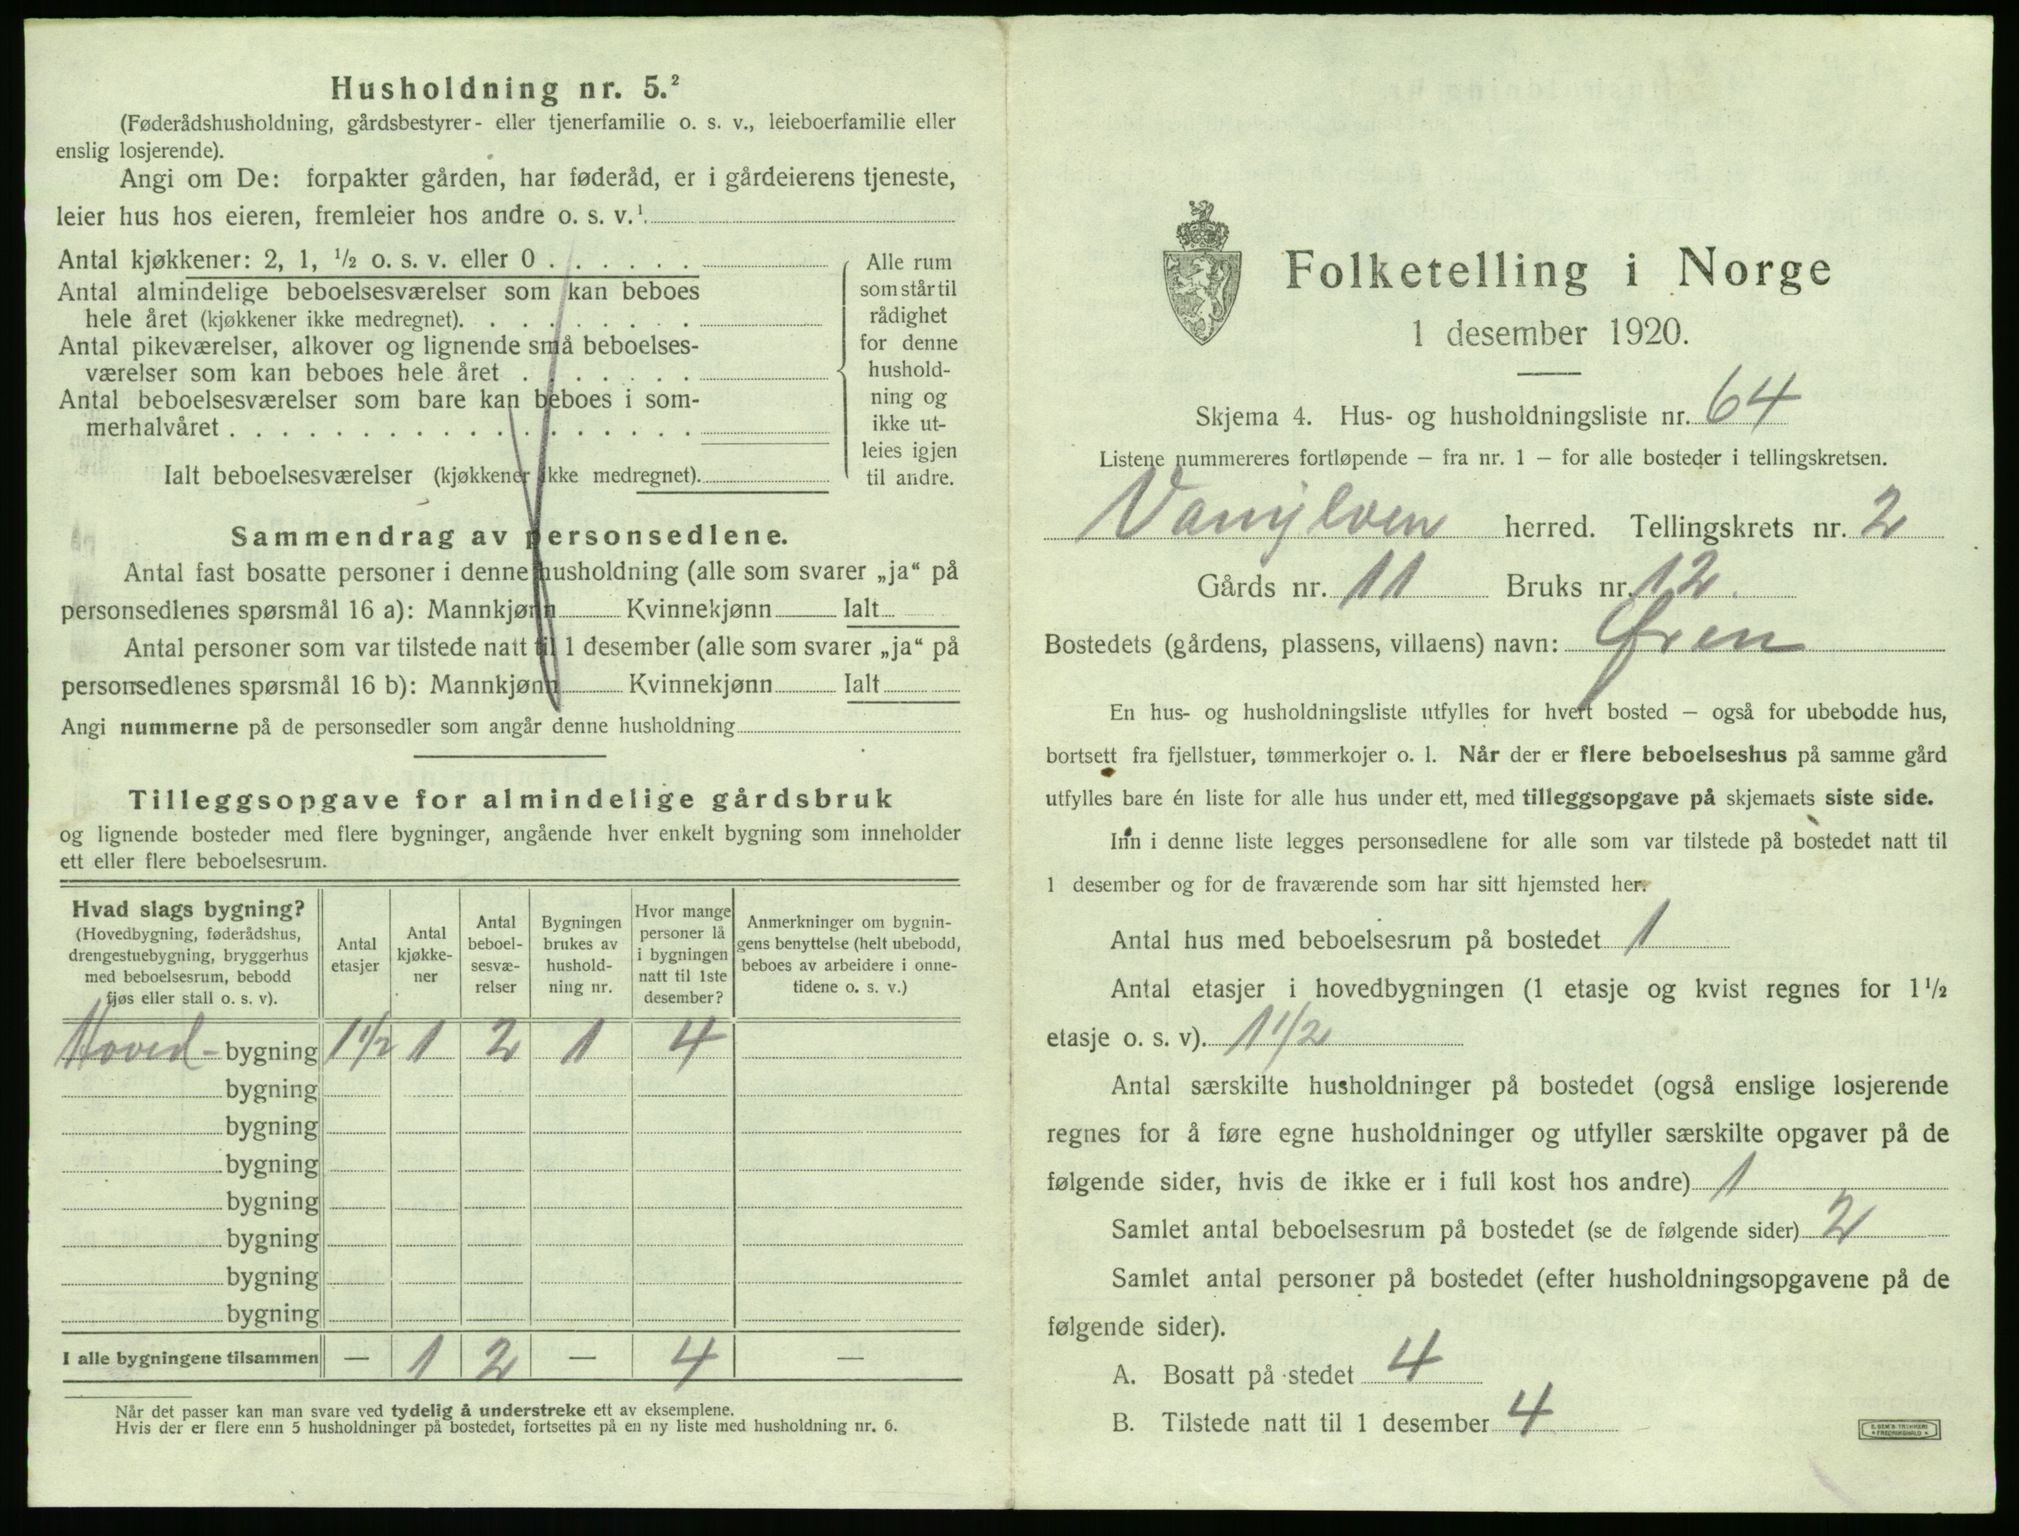 Husholdning nr. 5.²
(Føderådshusholdning, gårdsbestyrer- eller tjenerfamilie o. s. v., leieboerfamilie eller
enslig losjerende).
Angi om De: forpakter gården, har føderåd, er i gårdeierens tjeneste,
leier hus hos eieren, fremleier hos andre o. s. v.¹
Antal kjøkkener: 2, 1, ½ o. s. v. eller 0 . . . . . .
Antal almindelige beboelsesværelser som kan beboes
hele året (kjøkkener ikke medregnet). . . . . . . . .
Antal pikeværelser, alkover og lignende små beboelses-
værelser som kan beboes hele året . . . . . . .
Antal beboelsesværelser som bare kan beboes i som-
merhalvåret . . . . . . . . . . . . . . . . . .
Ialt beboelsesværelser (kjøkkener ikke medregnet).
Alle rum
som står til
rådighet
for denne
hushold-
ning og
ikke ut-
leies igjen
til andre.
Sammendrag av personsedlene.
Antal fast bosatte personer i denne husholdning (alle som svarer „ja“ på
personsedlenes spørsmål 16 a): Mannkjønn Kvinnekjønn Ialt
Antal personer som var tilstede natt til 1 desember (alle som svarer „ja“ på
personsedlenes spørsmål 16 b): Mannkjønn Kvinnekjønn Ialt
Angi nummerne på de personsedler som angår denne husholdning
Tilleggsopgave for almindelige gårdsbruk
og lignende bosteder med flere bygninger, angående hver enkelt bygning som inneholder
ett eller flere beboelsesrum.
Hvad slags bygning?
(Hovedbygning, føderådshus,
drengestuebygning, bryggerhus
med beboelsesrum, bebodd
fjøs eller stall o. s. v).
Antal
etasjer
Antal
kjøkke-
ner
Antal
beboel-
sesvæ-
relser
Bygningen
brukes av
hushold-
ning nr.
Hvor mange
personer lå
i bygningen
natt til 1ste
desember?
Anmerkninger om bygnin-
gens benyttelse (helt ubebodd,
beboes av arbeidere i onne-
tidene o. s. v.)
Hoved- bygning 1½ 1 2 1 4
bygning
bygning
bygning
bygning
bygning
bygning
bygning
I alle bygningene tilsammen — 1 2 — 4 —
Når det passer kan man svare ved tydelig å understreke ett av eksemplene.
Hvis der er flere enn 5 husholdninger på bostedet, fortsettes på en ny liste med husholdning nr. 6.
Folketelling i Norge
1 desember 1920.
Skjema 4. Hus- og husholdningsliste nr. 64
Listene nummereres fortløpende — fra nr. 1 — for alle bosteder i tellingskretsen.
Vanylven herred. Tellingskrets nr. 2
Gårds nr. 11 Bruks nr. 12.
Bostedets (gårdens, plassens, villaens) navn: Øren
En hus- og husholdningsliste utfylles for hvert bosted — også for ubebodde hus,
bortsett fra fjellstuer, tømmerkojer o. l. Når der er flere beboelseshus på samme gård
utfylles bare én liste for alle hus under ett, med tilleggsopgave på skjemaets siste side.
Inn i denne liste legges personsedlene for alle som var tilstede på bostedet natt til
1 desember og for de fraværende som har sitt hjemsted her.
Antal hus med beboelsesrum på bostedet 1
Antal etasjer i hovedbygningen (1 etasje og kvist regnes for 1½
etasje o. s. v). 1½
Antal særskilte husholdninger på bostedet (også enslige losjerende
regnes for å føre egne husholdninger og utfyller særskilte opgaver på de
følgende sider, hvis de ikke er i full kost hos andre) 1
Samlet antal beboelsesrum på bostedet (se de følgende sider) 2
Samlet antal personer på bostedet (efter husholdningsopgavene på de
følgende sider).
A. Bosatt på stedet 4
B. Tilstede natt til 1 desember 4